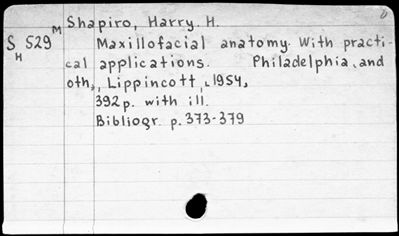 M Shapiro, Harry. H.
S 529 Maxillofacial anatomy. With practi-
H cal applications. Philadelphia, and
oth., Lippincott, 1954,
392 p. with ill.
Bibliogr. p. 373-379